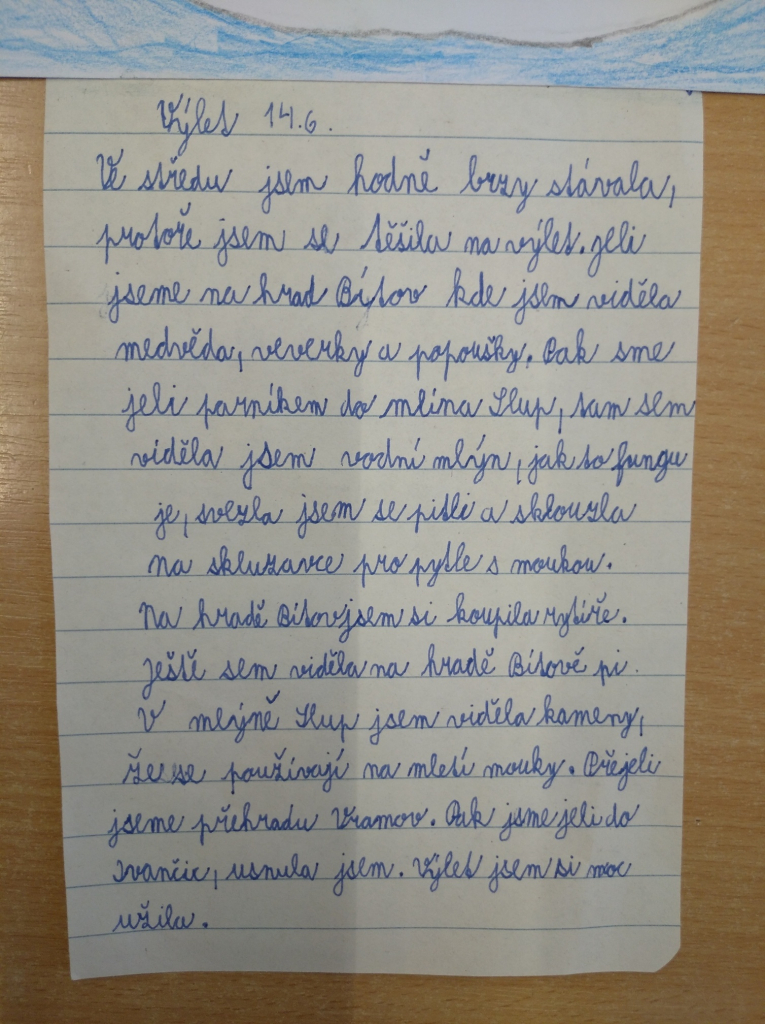 Výlet 14.6.
Ve středu jsem hodně brzy stávala,
protoře jsem se těšila na výlet. jeli
jseme na hrad Bítov kde jsem viděla
medvěda, veverky a popoušky. Pak sme
jeli parníkem do mlína Slup, tam sem
viděla jsem vodní mlýn, jak to fungu
je, svezla jsem se pitli a sklouzla
na skluzavce pro pytle s moukou.
Na hradě Bítov jsem si koupila rytíře.
Ještě sem viděla na hradě Bítově pi.
V mlýně Slup jsem viděla kameny,
že se používají na mletí mouky. Přejeli
jseme přehradu Vramov. Pak jsme jeli do
Ivančic, usnula jsem. Výlet jsem si moc
užila.